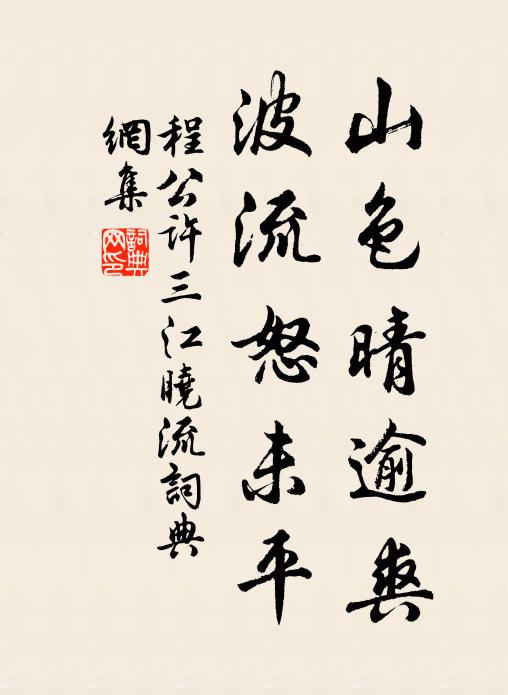 山色晴逾爽
波流怒未平
程公許三江曉流詞典
網集
詞典
网印